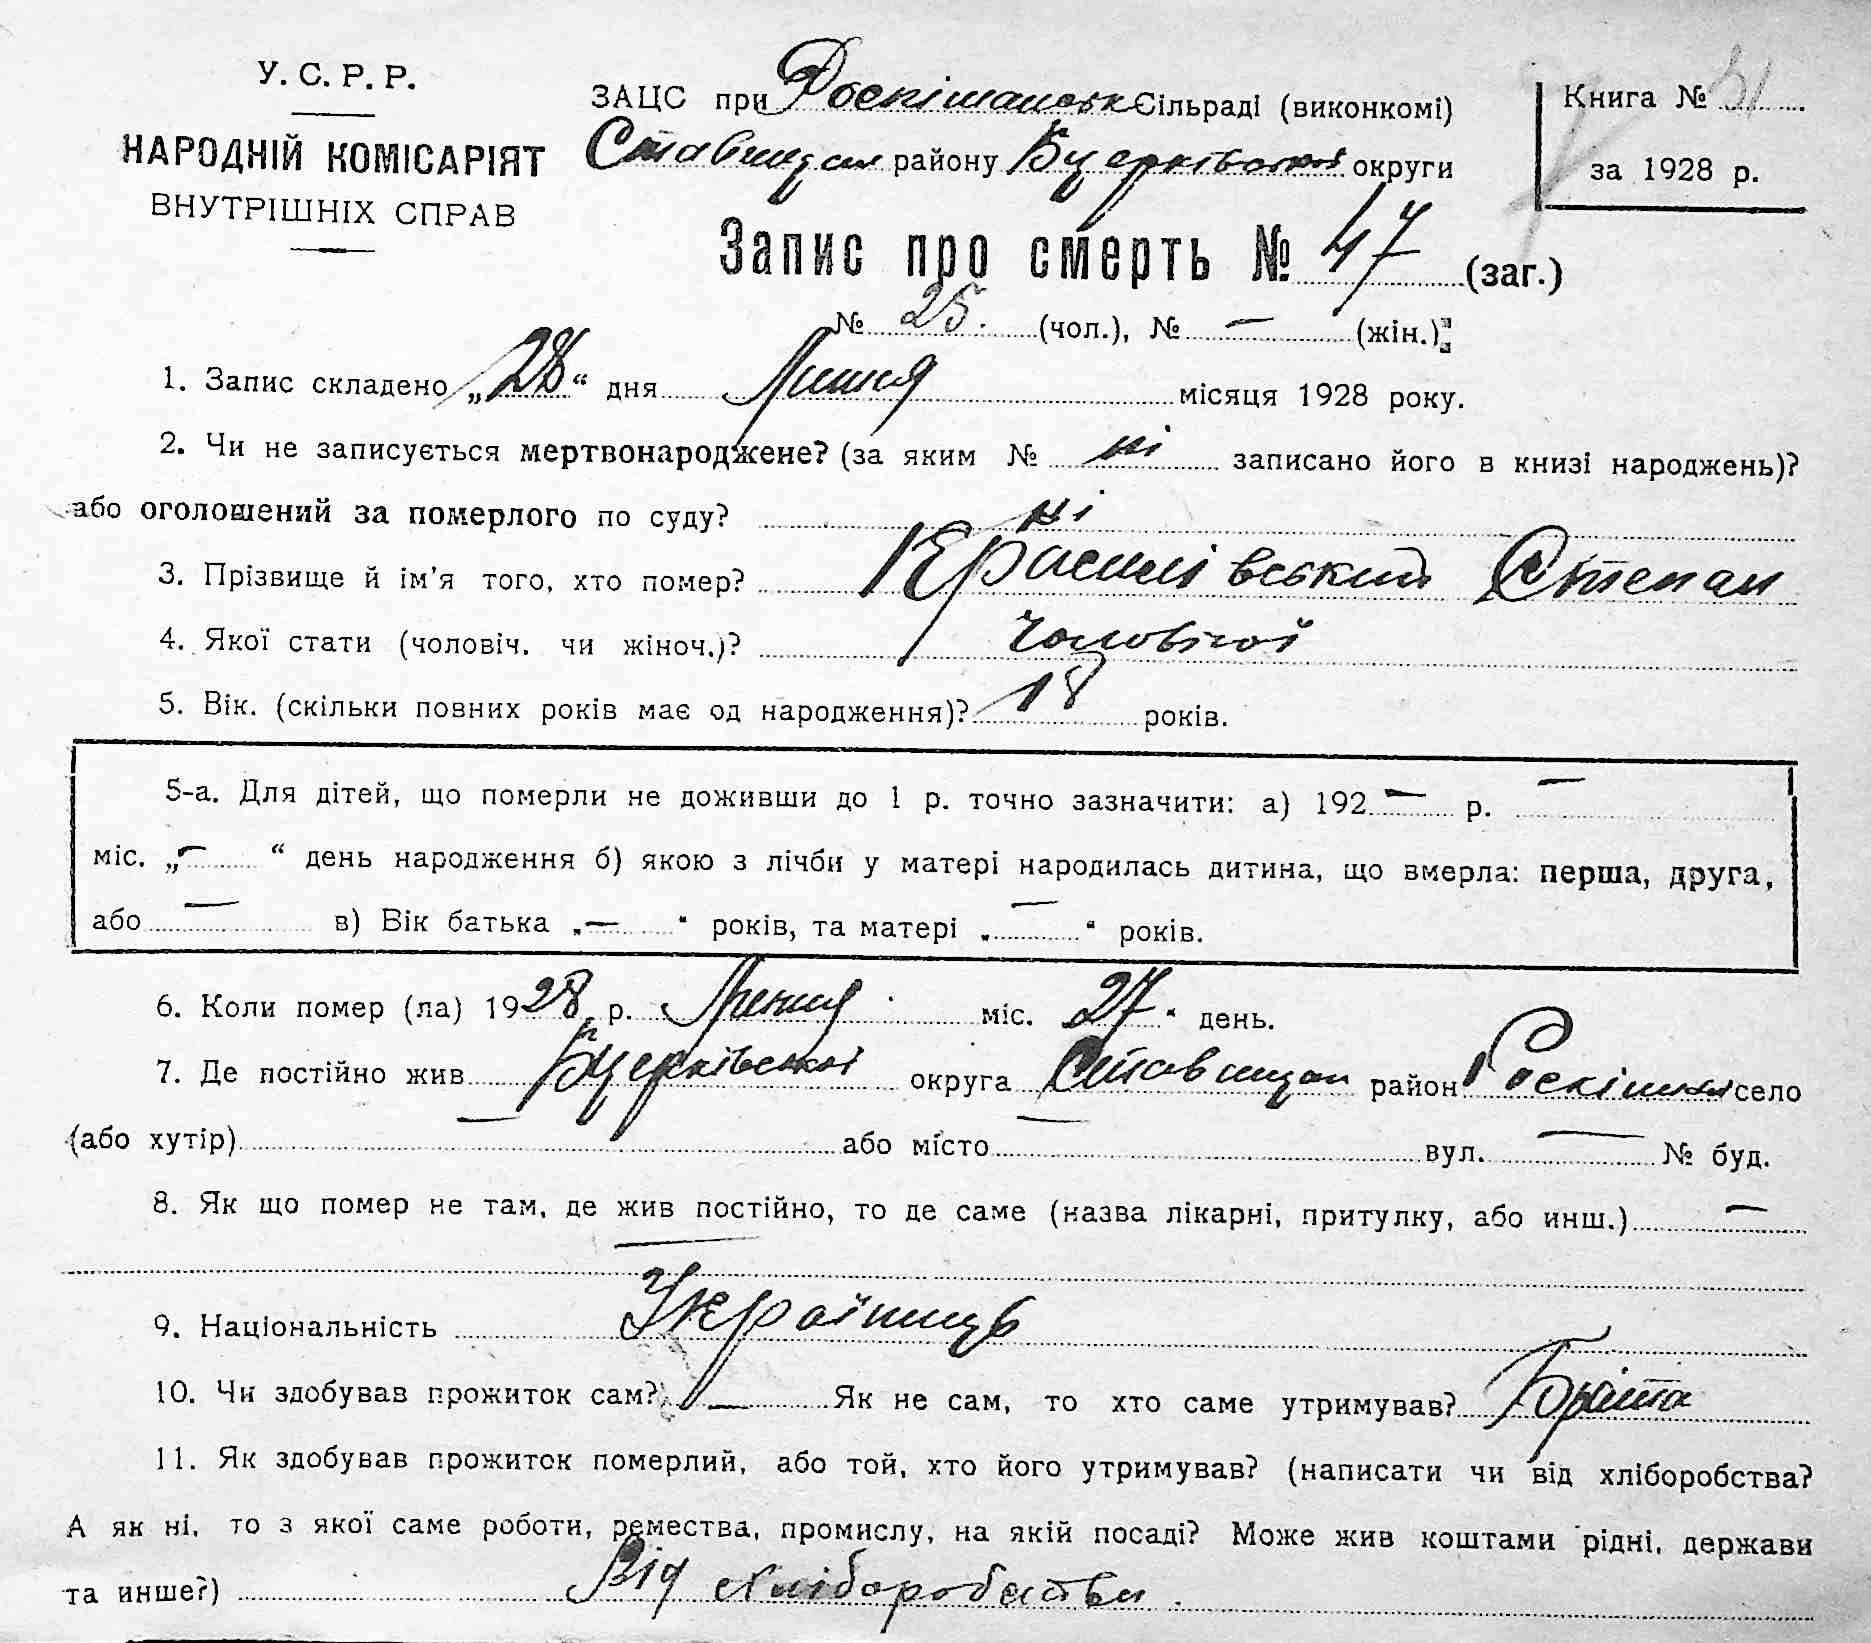 У. С. Р. Р.
НАРОДНІЙ КОМІСАРІЯТ
ВНУТРІШНІХ СПРАВ
ЗАЦС при Роскішанськ Сільраді (виконкомі)
Ставищан району Бцерківської округи
Книга № 31
за 1928 р.
Запис про смерть № 47 (заг.)
№ 25. (чол.), № — (жін.)
1. Запис складено „28“ дня Липня місяця 1928 року.
2. Чи не записується мертвонароджене? (за яким № ні записано його в книзі народжень)?
або оголошений за померлого по суду? ні
3. Прізвище й ім'я того, хто помер? Красилівський Степан
4. Якої стати (чоловіч. чи жіноч.)? чоловічої
5. Вік. (скільки повних років має од народження)? 18 років.
5-а. Для дітей, що померли не доживши до 1 р. точно зазначити: а) 192 — р. —
міс. „—“ день народження б) якою з лічби у матері народилась дитина, що вмерла: перша, друга,
або — в) Вік батька „—“ років, та матері „—“ років.
6. Коли помер (ла) 1928 р. Липня міс. 27 “ день.
7. Де постійно жив Бцерківської округа Ставищан район Роскішна село
(або хутір) — або місто — вул. — № буд.
8. Як що помер не там, де жив постійно, то де саме (назва лікарні, притулку, або инш.) —
9. Національність Українець
10. Чи здобував прожиток сам? — Як не сам, то хто саме утримував?
11. Як здобував прожиток померлий, або той, хто його утримував? (написати чи від хліборобства?
А як ні, то з якої саме роботи, ремества, промислу, на якій посаді? Може жив коштами рідні, держави
та инше?) Від хліборобства.